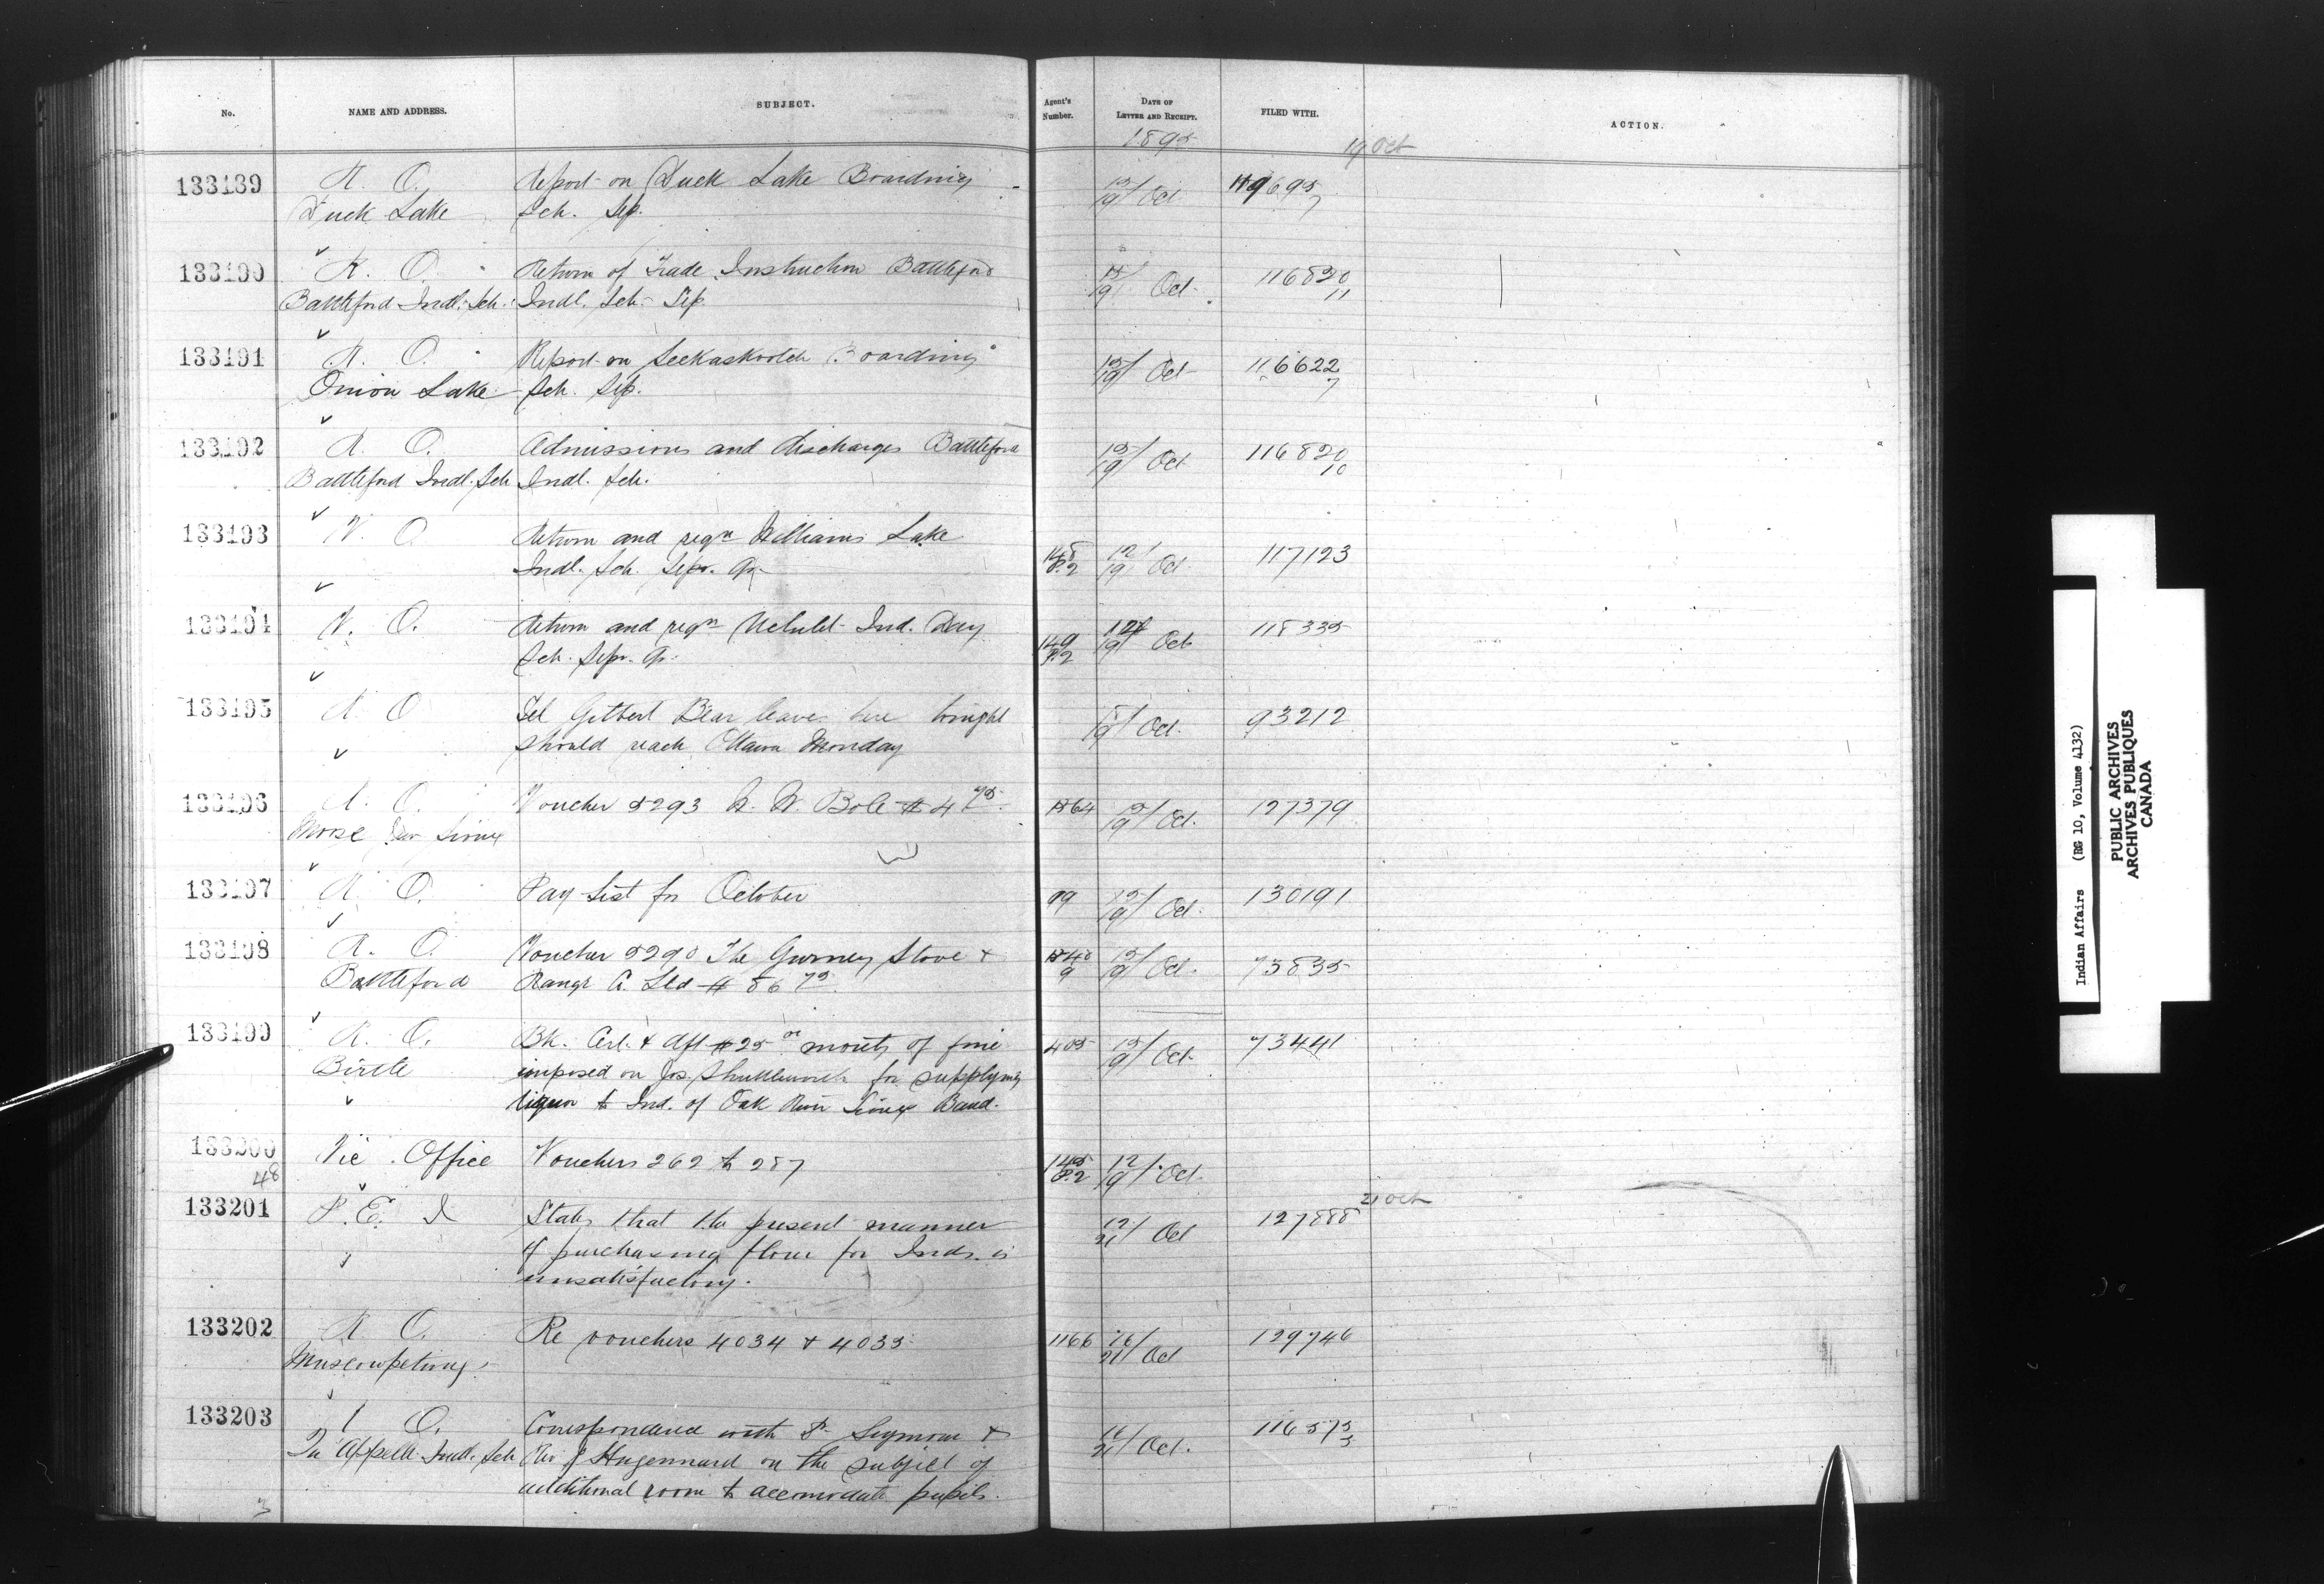 No.	NAME AND ADDRESS.	SUBJECT.	Agent's Number.	DATE OF LETTER AND RECEIPT.	FILED WITH.	ACTION.
1895	19 Oct
133189	R. O.	Report on Duck Lake Boarding	15/19 Oct	119695
Duck Lake	Sch. Sep.	7
133190	R. O.	Return of Trade Instruction Battleford	15/19 Oct	116820
Battleford Indl. Sch.	Indl. Sch. Sep.	11
133191	R. O.	Report on Seekaskootch Boarding	15/19 Oct	116622
Onion Lake	Sch. Sep.	7
133192	R. O.	Admissions and discharges Battleford	15/19 Oct	116820
Battleford Indl. Sch	Indl. Sch.	10
133193	V. O	Return and reqn Williams Lake
Indl. Sch. Sepr. Qr.	148 P.2	12/19 Oct	117123
133194	V. O.	Return and reqn Uclulet Ind. Day	12/19 Oct	118335
Sch. Sepr. Qr.	149 P.2
133195	R O	Tel Gilbert Bear leaves here tonight	/19 Oct.	93212
should reach Ottawa Monday
133196	R. O.	Voucher 5293 W. W. Bole $4 75	1564	15/19 Oct.	127379
Moose Jaw Sioux
133197	R O.	Pay List for October	99	15/19 Oct.	130191
133198	R. O.	Voucher 5290 The Gurney Stove &	1548	15/19 Oct.	73835
Battleford	Range Co. Ltd $86 75	9
133199	R. O.	Bk. Cert. & dft $25 00 moiety of fine	405	15/19 Oct.	73441
Birtle	imposed on Jos. Shuttleworth for supplying
liquor to Ind. of Oak River Sioux Band.
133200	Vic. Office	Vouchers 262 to 287	145 P.2	12/19 Oct.
48
133201	P. E. I	States that the present manner	12/21 Oct	127888	21 Oct
of purchasing flour for Inds. is
unsatisfactory.
133202	R O.	Re vouchers 4034 & 4035	1166	16/21 Oct	129746
Muscowpetungs
133203	O.	Correspondence with Dr Seymour &	16/21 Oct.	116575
Qu'Appelle Indl. Sch	Rev J Hugonnard on the subject of	3
additional room to accomodate pupils.
3
Indian Affairs (RG 10, Volume 4132)
PUBLIC ARCHIVES
ARCHIVES PUBLIQUES
CANADA